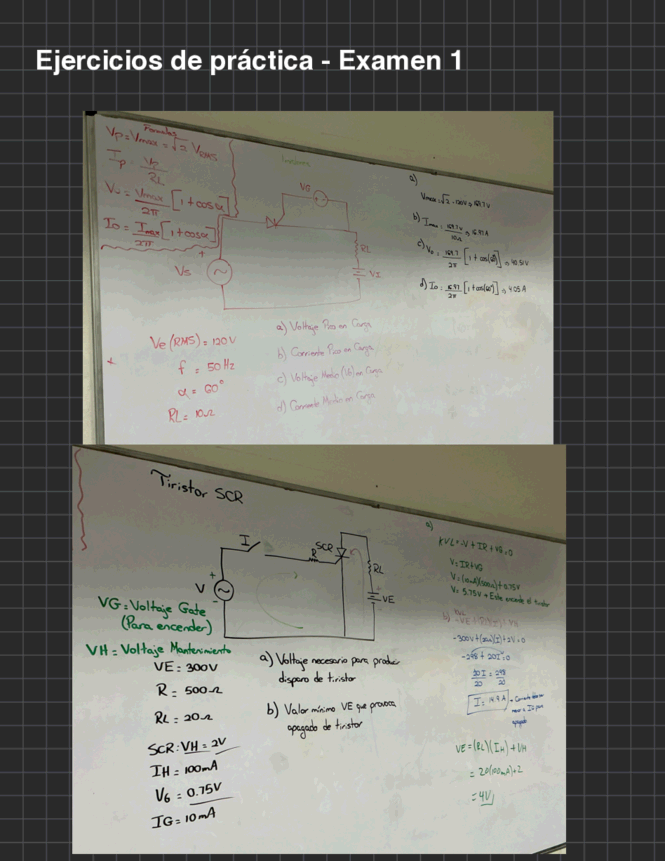 Ejercicios de práctica - Examen 1
Formulas
Vp = Vmax = √2 VRMS
Ip = Vp / RL
Vo = Vmax / 2π [1 + cos α]
Io = Imax / 2π [1 + cos α]
VG
RL
VS
+
Ve (RMS) = 120 V
f = 50 Hz
α = 60°
RL = 10Ω
a) Voltaje Pico en Carga
b) Corriente Pico en Carga
c) Voltaje Medio (Vo) en Carga
d) Corriente Medio en Carga
a)
b) Imax = 169.7V / 10Ω → 16.97A
c) Vo = 169.7 / 2π [1 + cos(60)] → 40.51V
d) Io = 16.97 / 2π [1 + cos(60°)] → 4.05A
Tiristor SCR
I
R
SCR
RL
V
+
-
VE
VG = Voltaje Gate
(Para encender)
VH = Voltaje Mantenimiento
VE = 300V
R = 500Ω
RL = 20Ω
SCR: VH = 2V
IH = 100mA
VG = 0.75V
IG = 10mA
a) Voltaje necesario para producir
disparo de tiristor
b) Valor mínimo VE que provoca
apagado de tiristor
a)
KVL = -V + IR + VG = 0
V = IR + VG
V = (10mA)(500Ω) + 0.75V
V = 5.75V → Este enciende el tiristor
b)
-300V + (20Ω)(I) + 2V = 0
-298 + 20I = 0
20I / 20 = 298 / 20
I = 14.9 A
VE = (RL)(IH) + VH
= 20(100mA) + 2
= 4V